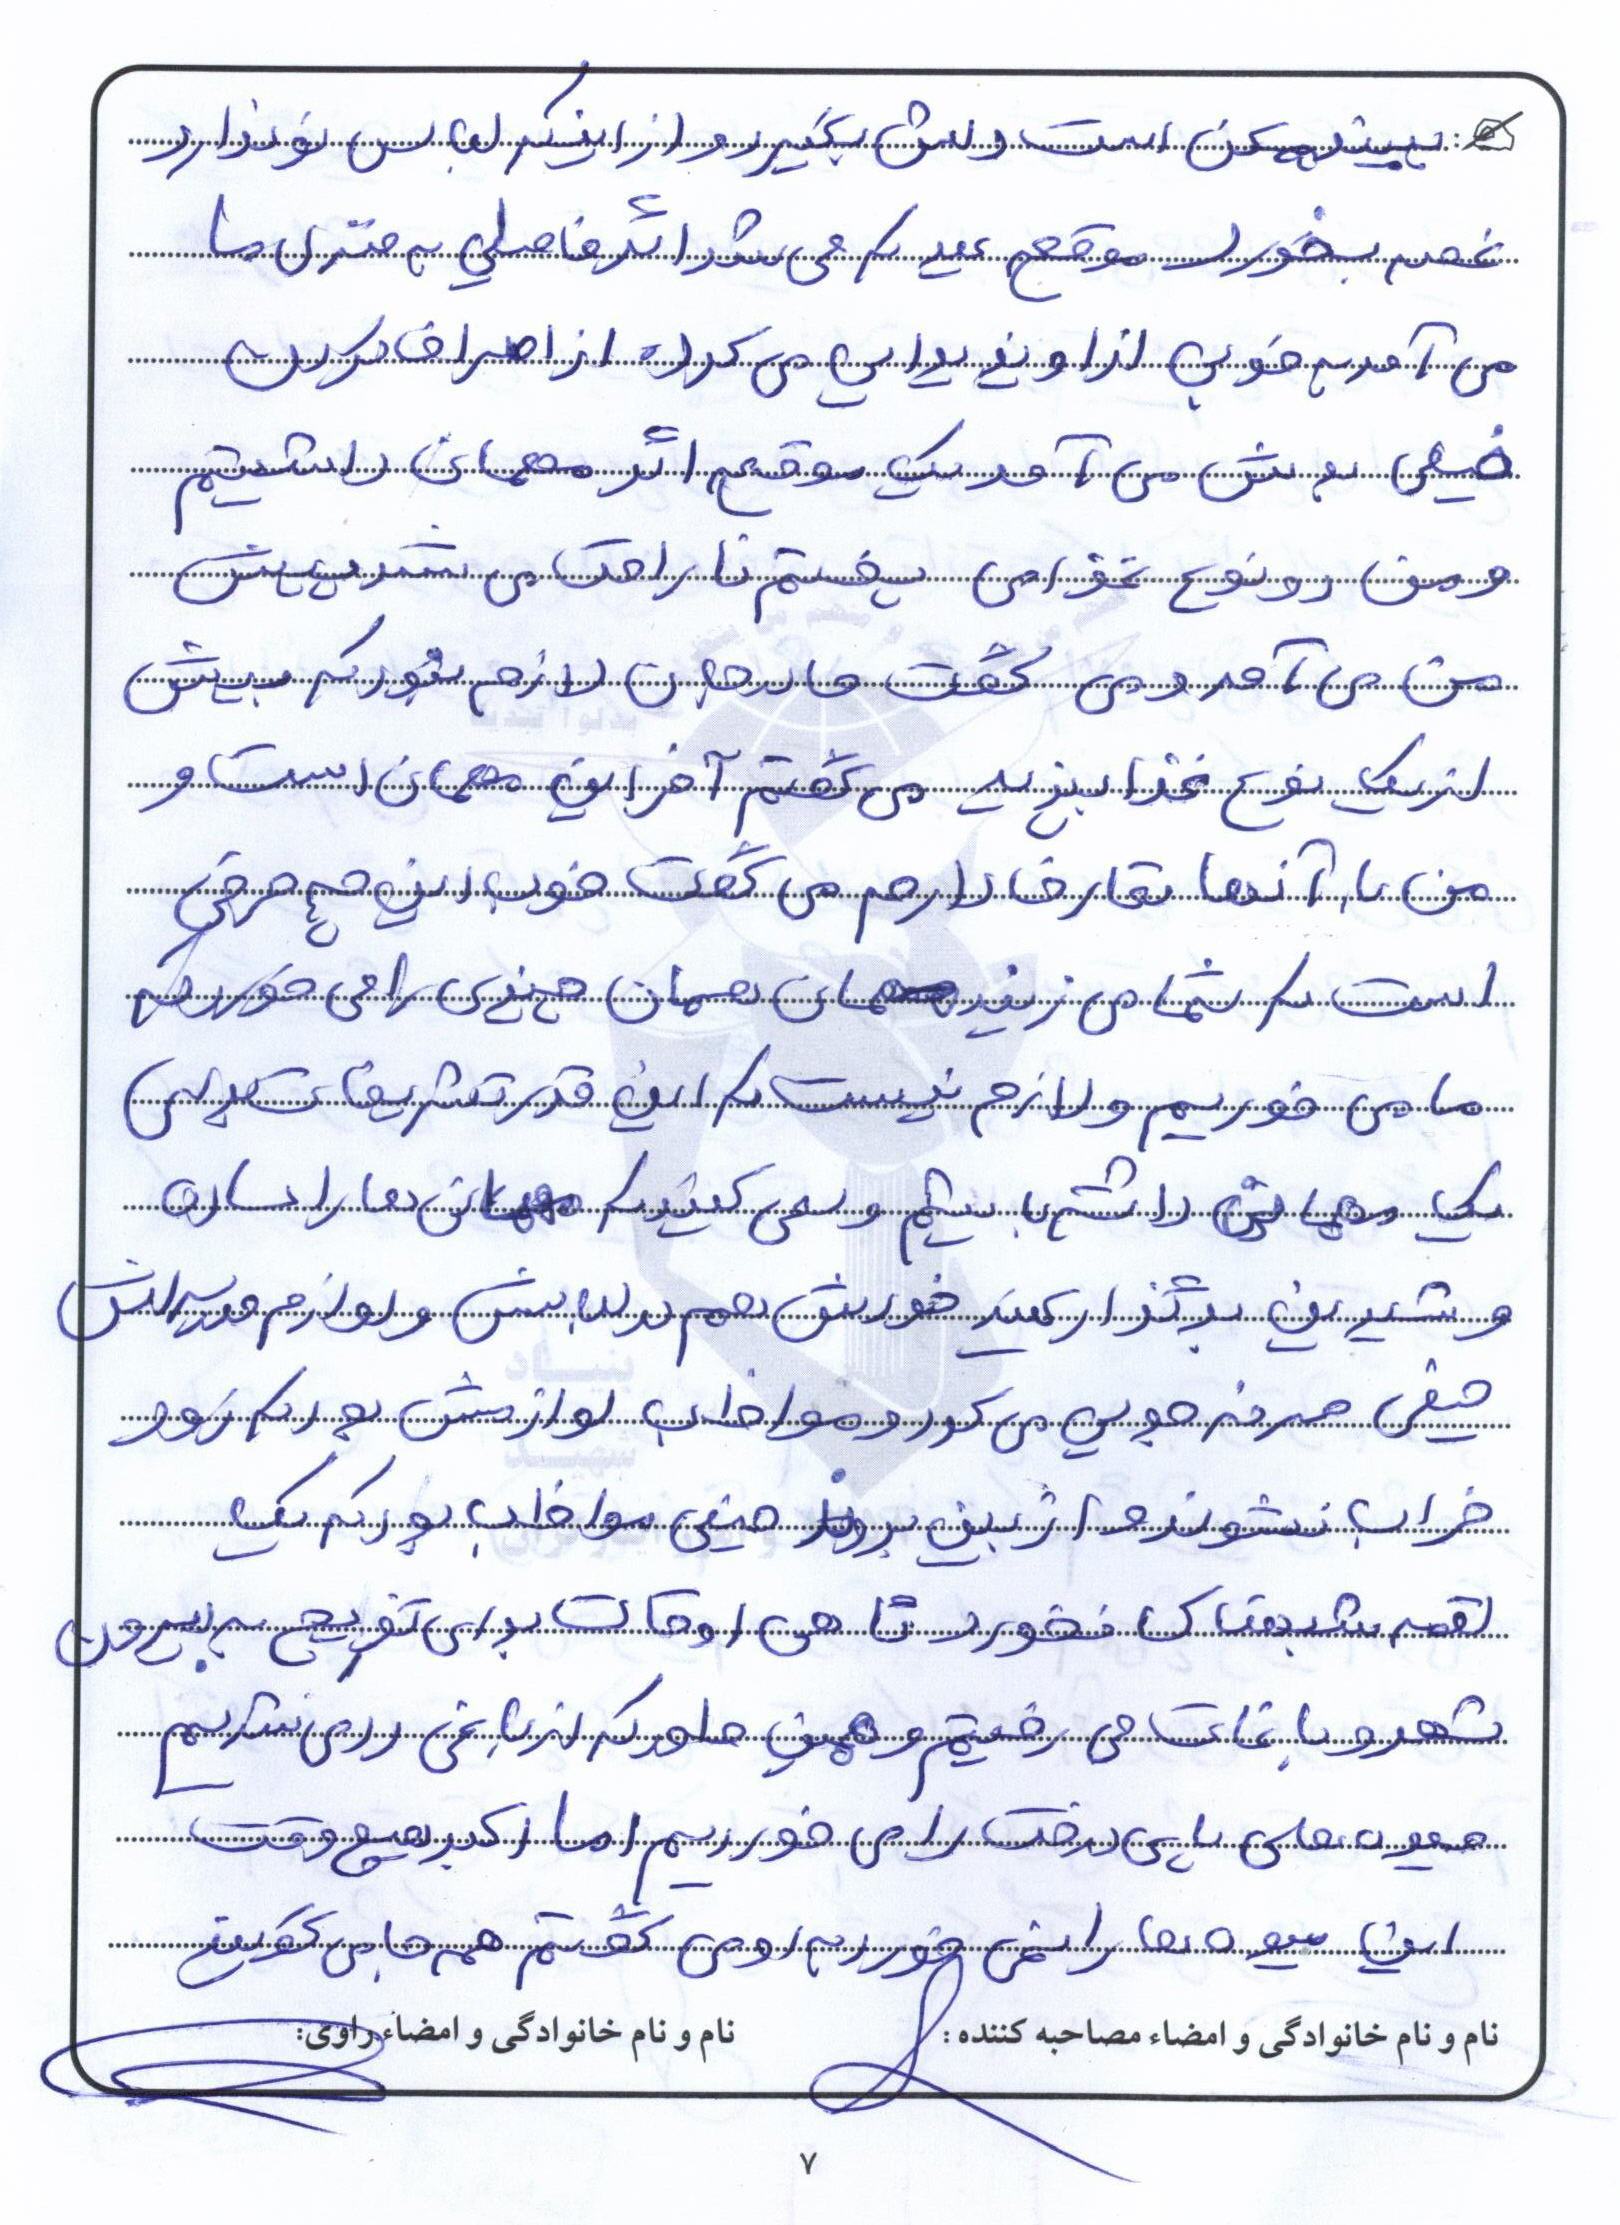 ببیند ممکن است دلش بگیرد و از اینکه لباس نو ندارد
غصه بخورد موقع عید که می شد اگر فامیلی به منزل ما
می آمد به خوبی از او پذیرایی می کرد از اسراف کردن
خیلی بدش می آمد یک موقع اگر مهمان داشتیم
و من دو نوع غذا می پختم ناراحت می شد پیش
من می آمد و می گفت مادرجان لازم نبود که بیش
از یک نوع غذا بپزید می گفتم آخر این مهمان است و
من با آنها تعارف دارم می گفت خوب این چه حرفی
است که شما می زنید مهمان همان چیزی را می خورد که
ما می خوریم و لازم نیست که این قدر تشریفات برای
یک مهمانی داشته باشیم و سعی کنید که مهمانی ها را ساده
و شیرین برگذار کنید خودش هم در لباسش و لوازم مدرسه اش
خیلی صرفه جویی می کرد و مواظب لوازمش بود که زود
خراب نشوند و از بین بروند خیلی مواظب بود که یک
لقمه شبهناک نخورد گاهی اوقات برای تفریح به بیرون
شهر و باغات می رفتیم و همین طور که از باغی رد می شدیم
میوه های پای درخت را می خوردیم اما اکبر هیچ وقت
این میوه ها را نمی خورد به او می گفتم همه ما می گفتیم
نام و نام خانوادگی و امضاء مصاحبه کننده:
نام و نام خانوادگی و امضاء راوی:
۷